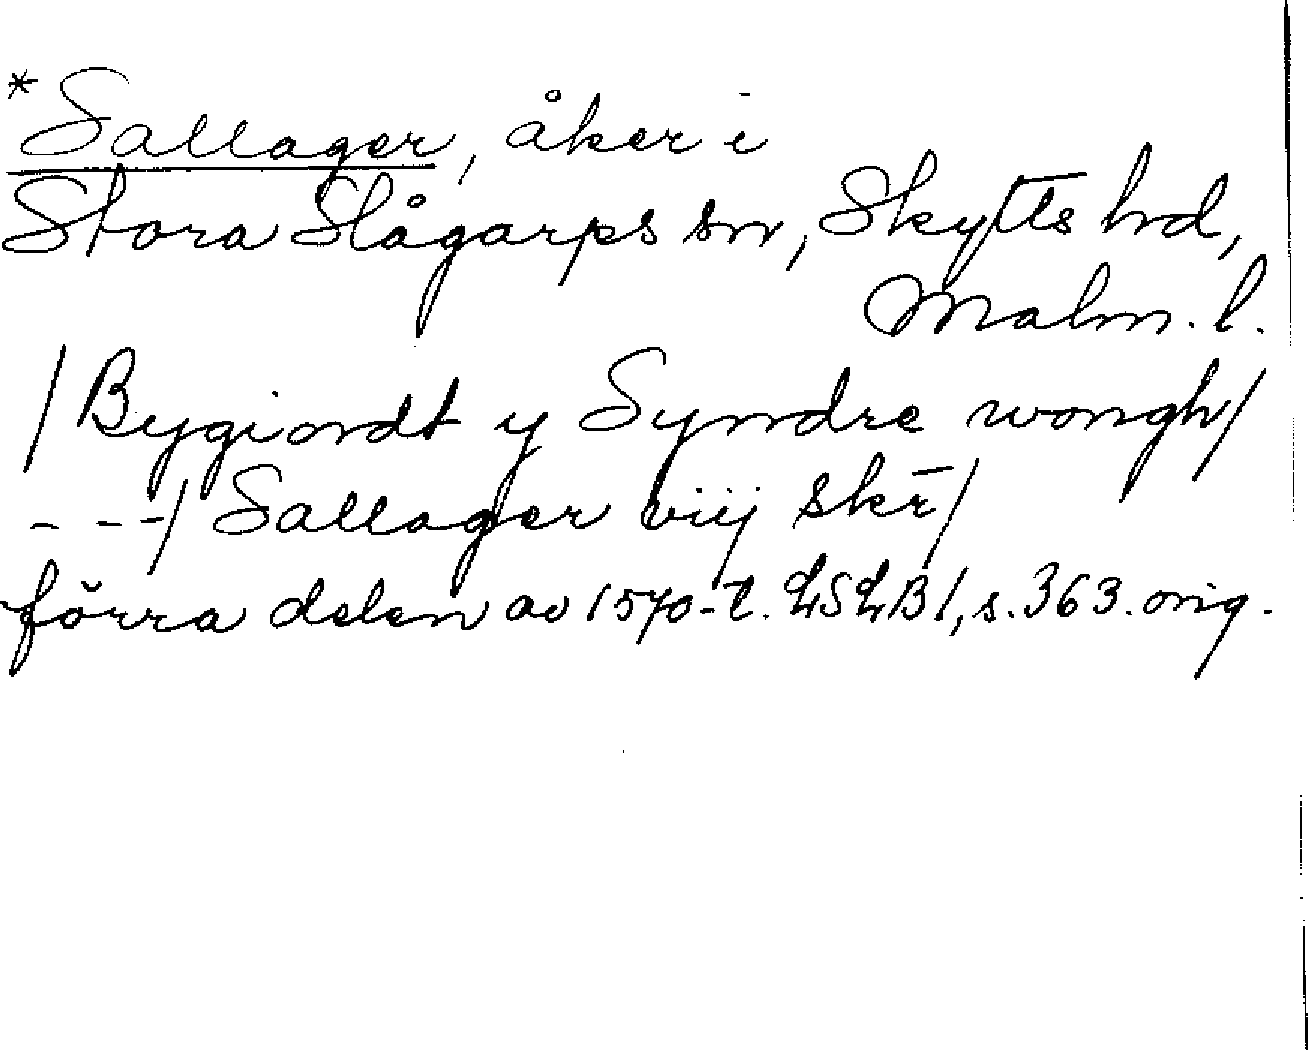 *Sallager, åker i
Stora Slågarps sn, Skytts hd,
Malm. l.
/Bygiordt y Syndre wongh/
- - -/ Sallager viij skr̄/
förra delen av 1570-t. LSLB1, s. 363. orig.